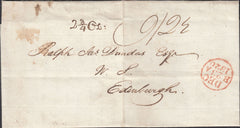 2¾ Oz.
9/2½
Ralph Jas Dundas Esqr
W. S.
Edinburgh.
DEC